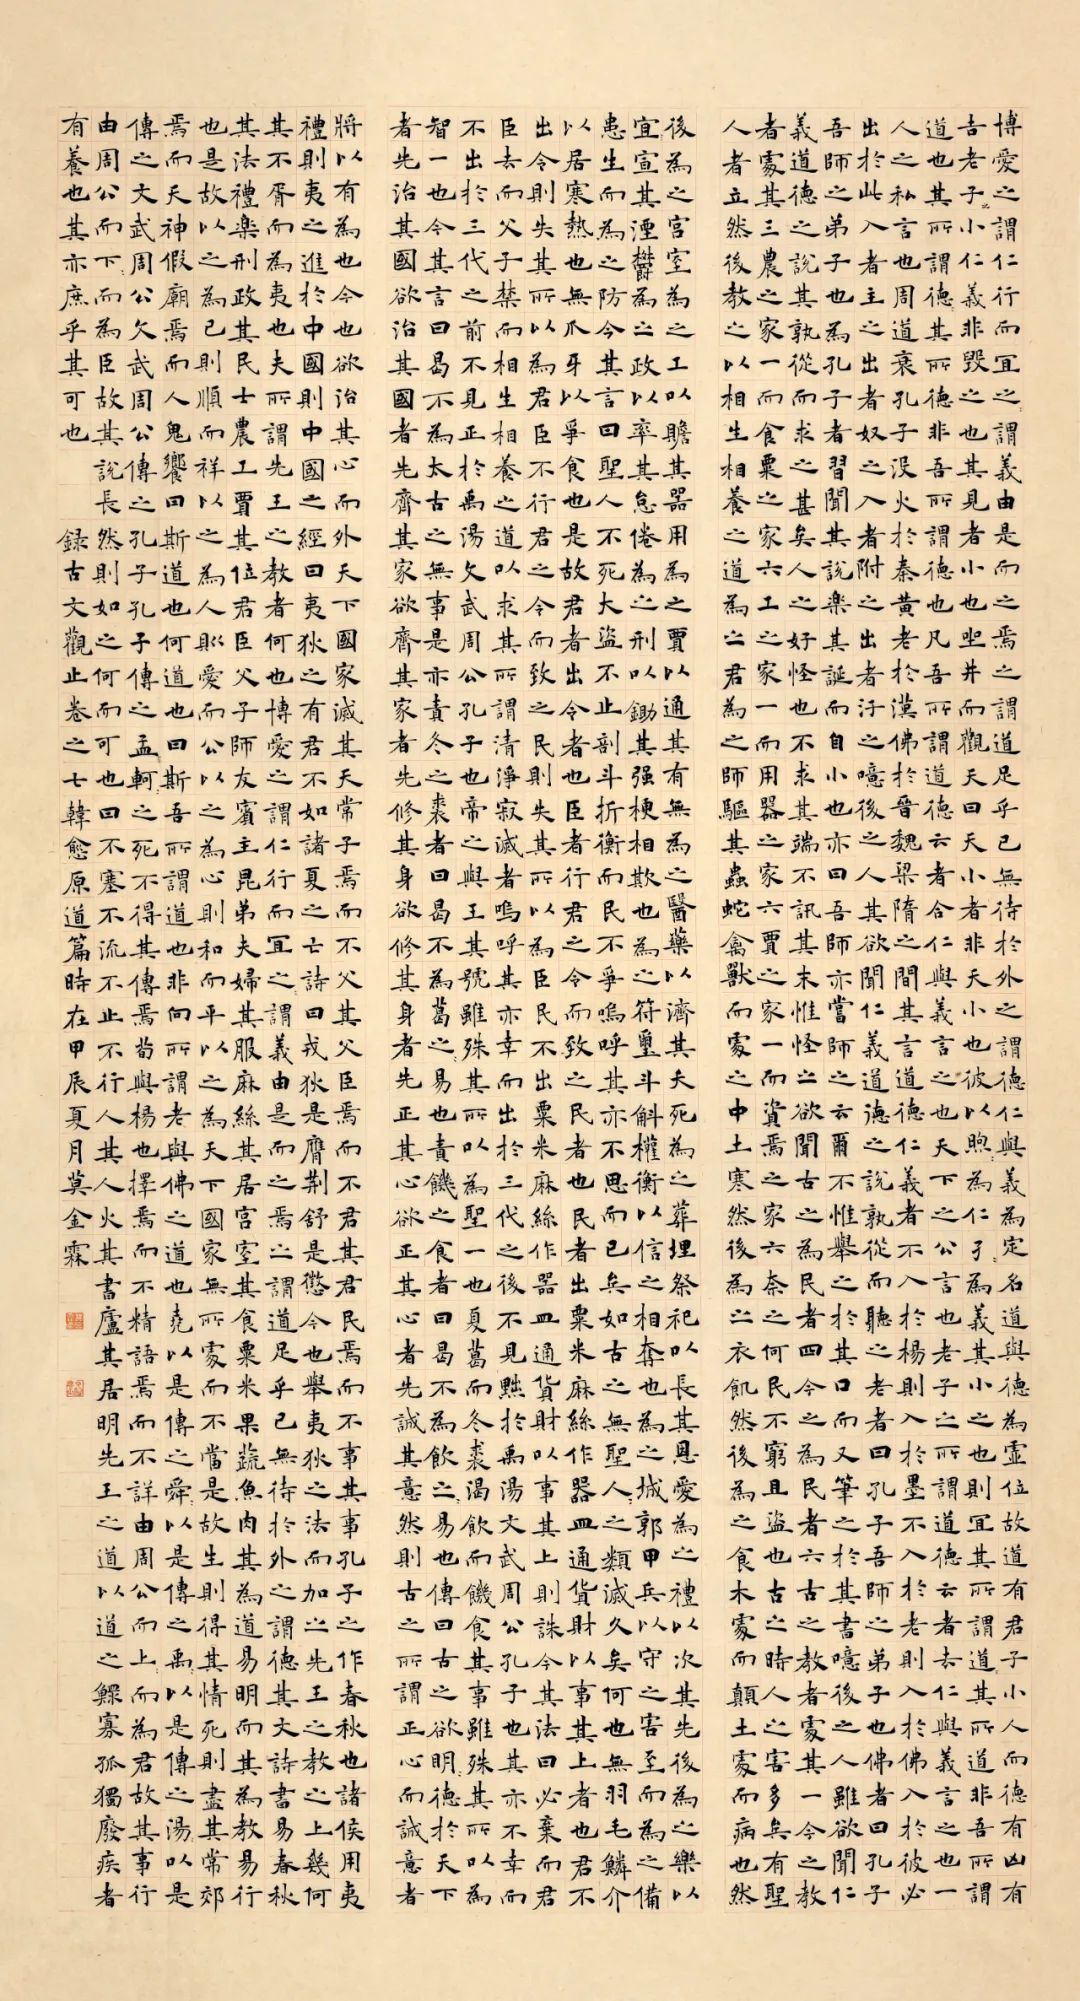 博愛之謂仁行而宜之謂義由是而之焉之謂道足乎己無待於外之謂德仁與義為定名道與德為虛位故道有君子小人而德有凶有
吉老子之小仁義非毀之也其見者小也坐井而觀天曰天小者非天小也彼以煦為仁孑為義其小之也則宜其所謂道其所道非吾所謂
道也其所謂德其所德非吾所謂德也凡吾所謂道德云者合仁與義言之也天下之公言也老子之所謂道德云者去仁與義言之也一
人之私言也周道衰孔子沒火於秦黃老於漢佛於晉魏梁隋之間其言道德仁義者不入於楊則入於墨不入於老則入於佛入於彼必
出於此入者主之出者奴之入者附之出者汙之噫後之人其欲聞仁義道德之說孰從而聽之老者曰孔子吾師之弟子也佛者曰孔子
吾師之弟子也為孔子者習聞其說樂其誕而自小也亦曰吾師亦嘗師之云爾不惟舉之於其口而又筆之於其書噫後之人雖欲聞仁
義道德之說其孰從而求之甚矣人之好怪也不求其端不訊其末惟怪之欲聞古之為民者四今之為民者六古之教者處其一今之教
者處其三農之家一而食粟之家六工之家一而用器之家六賈之家一而資焉之家六奈之何民不窮且盜也古之時人之害多矣有聖
人者立然後教之以相生相養之道為之君為之師驅其蟲蛇禽獸而處之中土寒然後為之衣飢然後為之食木處而顛土處而病也然
後為之宮室為之工以贍其器用為之賈以通其有無為之醫藥以濟其夭死為之葬埋祭祀以長其恩愛為之禮以次其先後為之樂以
宜宣其湮鬱為之政以率其怠倦為之刑以鋤其强梗相欺也為之符璽斗斛權衡以信之相奪也為之城郭甲兵以守之害至而為之備
患生而為之防今其言曰聖人不死大盜不止剖斗折衡而民不爭嗚呼其亦不思而已矣如古之無聖人之類滅久矣何也無羽毛鱗介
以居寒熱也無爪牙以爭食也是故君者出令者也臣者行君之令而致之民者也民者出粟米麻絲作器皿通貨財以事其上者也君不
出令則失其所以為君臣不行君之令而致之民則失其所以為臣民不出粟米麻絲作器皿通貨財以事其上則誅今其法曰必棄而君
臣去而父子禁而相生相養之道以求其所謂清淨寂滅者嗚呼其亦幸而出於三代之後不見黜於禹湯文武周公孔子也其亦不幸而
不出於三代之前不見正於禹湯文武周公孔子也帝之與王其號雖殊其所以為聖一也夏葛而冬裘渴飲而饑食其事雖殊其所以為
智一也今其言曰曷不為太古之無事是亦責冬之裘者曰曷不為葛之易也責饑之食者曰曷不為飲之易也傳曰古之欲明德於天下
者先治其國欲治其國者先齊其家欲齊其家者先修其身欲修其身者先正其心欲正其心者先誠其意然則古之所謂正心而誠意者
將以有為也今也欲治其心而外天下國家滅其天常子焉而不父其父臣焉而不君其君民焉而不事其事孔子之作春秋也諸侯用夷
禮則夷之進於中國則中國之經曰夷狄之有君不如諸夏之亡詩曰戎狄是膺荊舒是懲今也舉夷狄之法而加之先王之教之上幾何
其不胥而為夷也夫所謂先王之教者何也博愛之謂仁行而宜之謂義由是而之焉之謂道足乎己無待於外之謂德其文詩書易春秋
其法禮樂刑政其民士農工賈其位君臣父子師友賓主昆弟夫婦其服麻絲其居宮室其食粟米果蔬魚肉其為道易明而其為教易行
也是故以之為己則順而祥以之為人則愛而公以之為心則和而平以之為天下國家無所處而不當是故生則得其情死則盡其常郊
焉而天神假廟焉而人鬼饗曰斯道也何道也曰斯吾所謂道也非向所謂老與佛之道也堯以是傳之舜以是傳之禹以是傳之湯以是
傳之文武周公文武周公傳之孔子孔子傳之孟軻之死不得其傳焉荀與楊也擇焉而不精語焉而不詳由周公而上而為君故其事行
由周公而下而為臣故其說長然則如之何而可也曰不塞不流不止不行人其人火其書廬其居明先王之道以道之鰥寡孤獨廢疾者
有養也其亦庶乎其可也 錄古文觀止卷之七韓愈原道篇時在甲辰夏月莫金霖